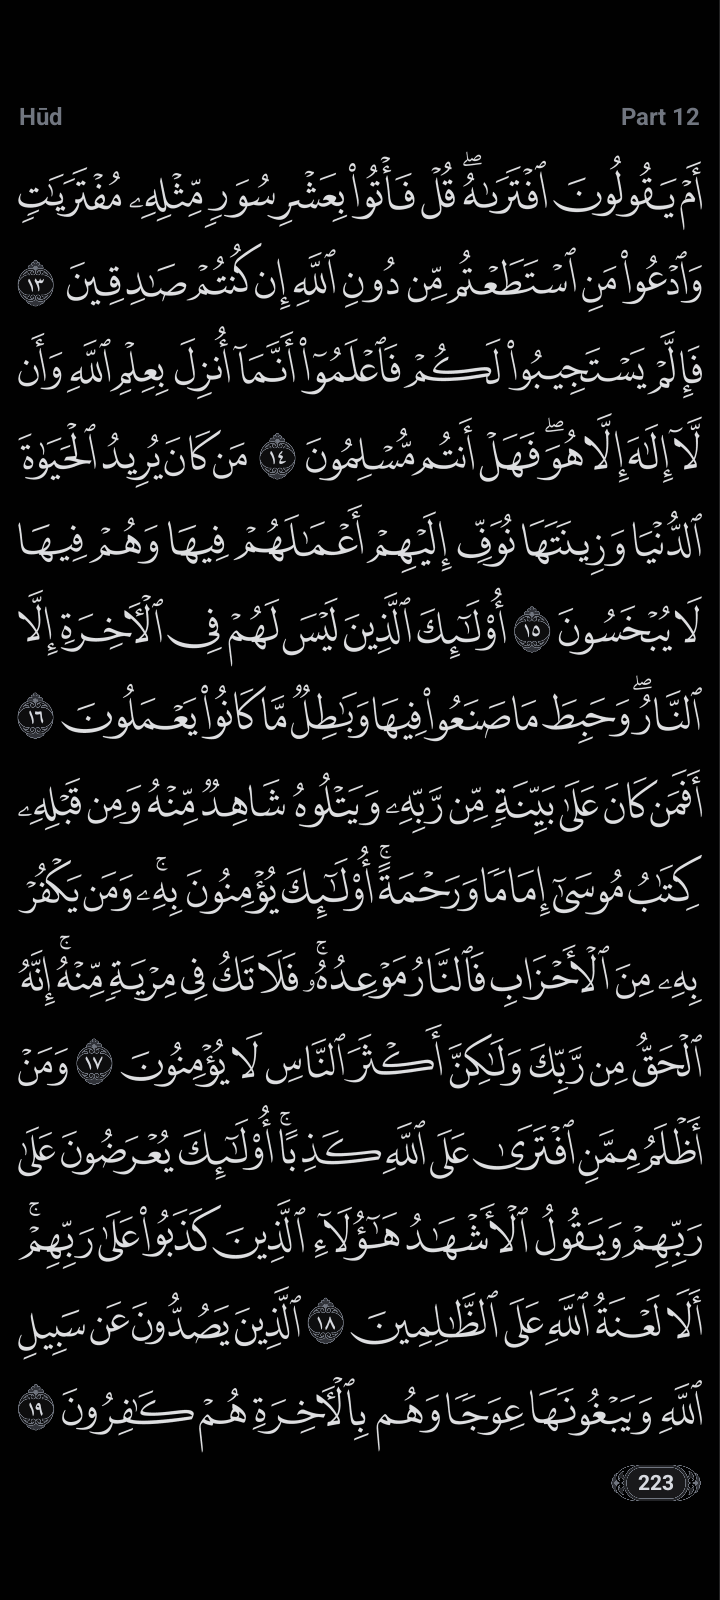 Hūd
Part 12
أَمْ يَقُولُونَ ٱفْتَرَىٰهُ ۖ قُلْ فَأْتُوا۟ بِعَشْرِ سُوَرٍ مِّثْلِهِۦ مُفْتَرَيَـٰتٍ
وَٱدْعُوا۟ مَنِ ٱسْتَطَعْتُم مِّن دُونِ ٱللَّهِ إِن كُنتُمْ صَـٰدِقِينَ ١٣
فَإِلَّمْ يَسْتَجِيبُوا۟ لَكُمْ فَٱعْلَمُوٓا۟ أَنَّمَآ أُنزِلَ بِعِلْمِ ٱللَّهِ وَأَن
لَّآ إِلَـٰهَ إِلَّا هُوَ ۖ فَهَلْ أَنتُم مُّسْلِمُونَ ١٤ مَن كَانَ يُرِيدُ ٱلْحَيَوٰةَ
ٱلدُّنْيَا وَزِينَتَهَا نُوَفِّ إِلَيْهِمْ أَعْمَـٰلَهُمْ فِيهَا وَهُمْ فِيهَا
لَا يُبْخَسُونَ ١٥ أُو۟لَـٰٓئِكَ ٱلَّذِينَ لَيْسَ لَهُمْ فِى ٱلْـَٔاخِرَةِ إِلَّا
ٱلنَّارُ ۖ وَحَبِطَ مَا صَنَعُوا۟ فِيهَا وَبَـٰطِلٌ مَّا كَانُوا۟ يَعْمَلُونَ ١٦
أَفَمَن كَانَ عَلَىٰ بَيِّنَةٍ مِّن رَّبِّهِۦ وَيَتْلُوهُ شَاهِدٌ مِّنْهُ وَمِن قَبْلِهِۦ
كِتَـٰبُ مُوسَىٰٓ إِمَامًا وَرَحْمَةً ۚ أُو۟لَـٰٓئِكَ يُؤْمِنُونَ بِهِۦ ۚ وَمَن يَكْفُرْ
بِهِۦ مِنَ ٱلْأَحْزَابِ فَٱلنَّارُ مَوْعِدُهُۥ ۚ فَلَا تَكُ فِى مِرْيَةٍ مِّنْهُ ۚ إِنَّهُ
ٱلْحَقُّ مِن رَّبِّكَ وَلَـٰكِنَّ أَكْثَرَ ٱلنَّاسِ لَا يُؤْمِنُونَ ١٧ وَمَنْ
أَظْلَمُ مِمَّنِ ٱفْتَرَىٰ عَلَى ٱللَّهِ كَذِبًا ۚ أُو۟لَـٰٓئِكَ يُعْرَضُونَ عَلَىٰ
رَبِّهِمْ وَيَقُولُ ٱلْأَشْهَـٰدُ هَـٰٓؤُلَآءِ ٱلَّذِينَ كَذَبُوا۟ عَلَىٰ رَبِّهِمْ ۚ
أَلَا لَعْنَةُ ٱللَّهِ عَلَى ٱلظَّـٰلِمِينَ ١٨ ٱلَّذِينَ يَصُدُّونَ عَن سَبِيلِ
ٱللَّهِ وَيَبْغُونَهَا عِوَجًا وَهُم بِٱلْـَٔاخِرَةِ هُمْ كَـٰفِرُونَ ١٩
223